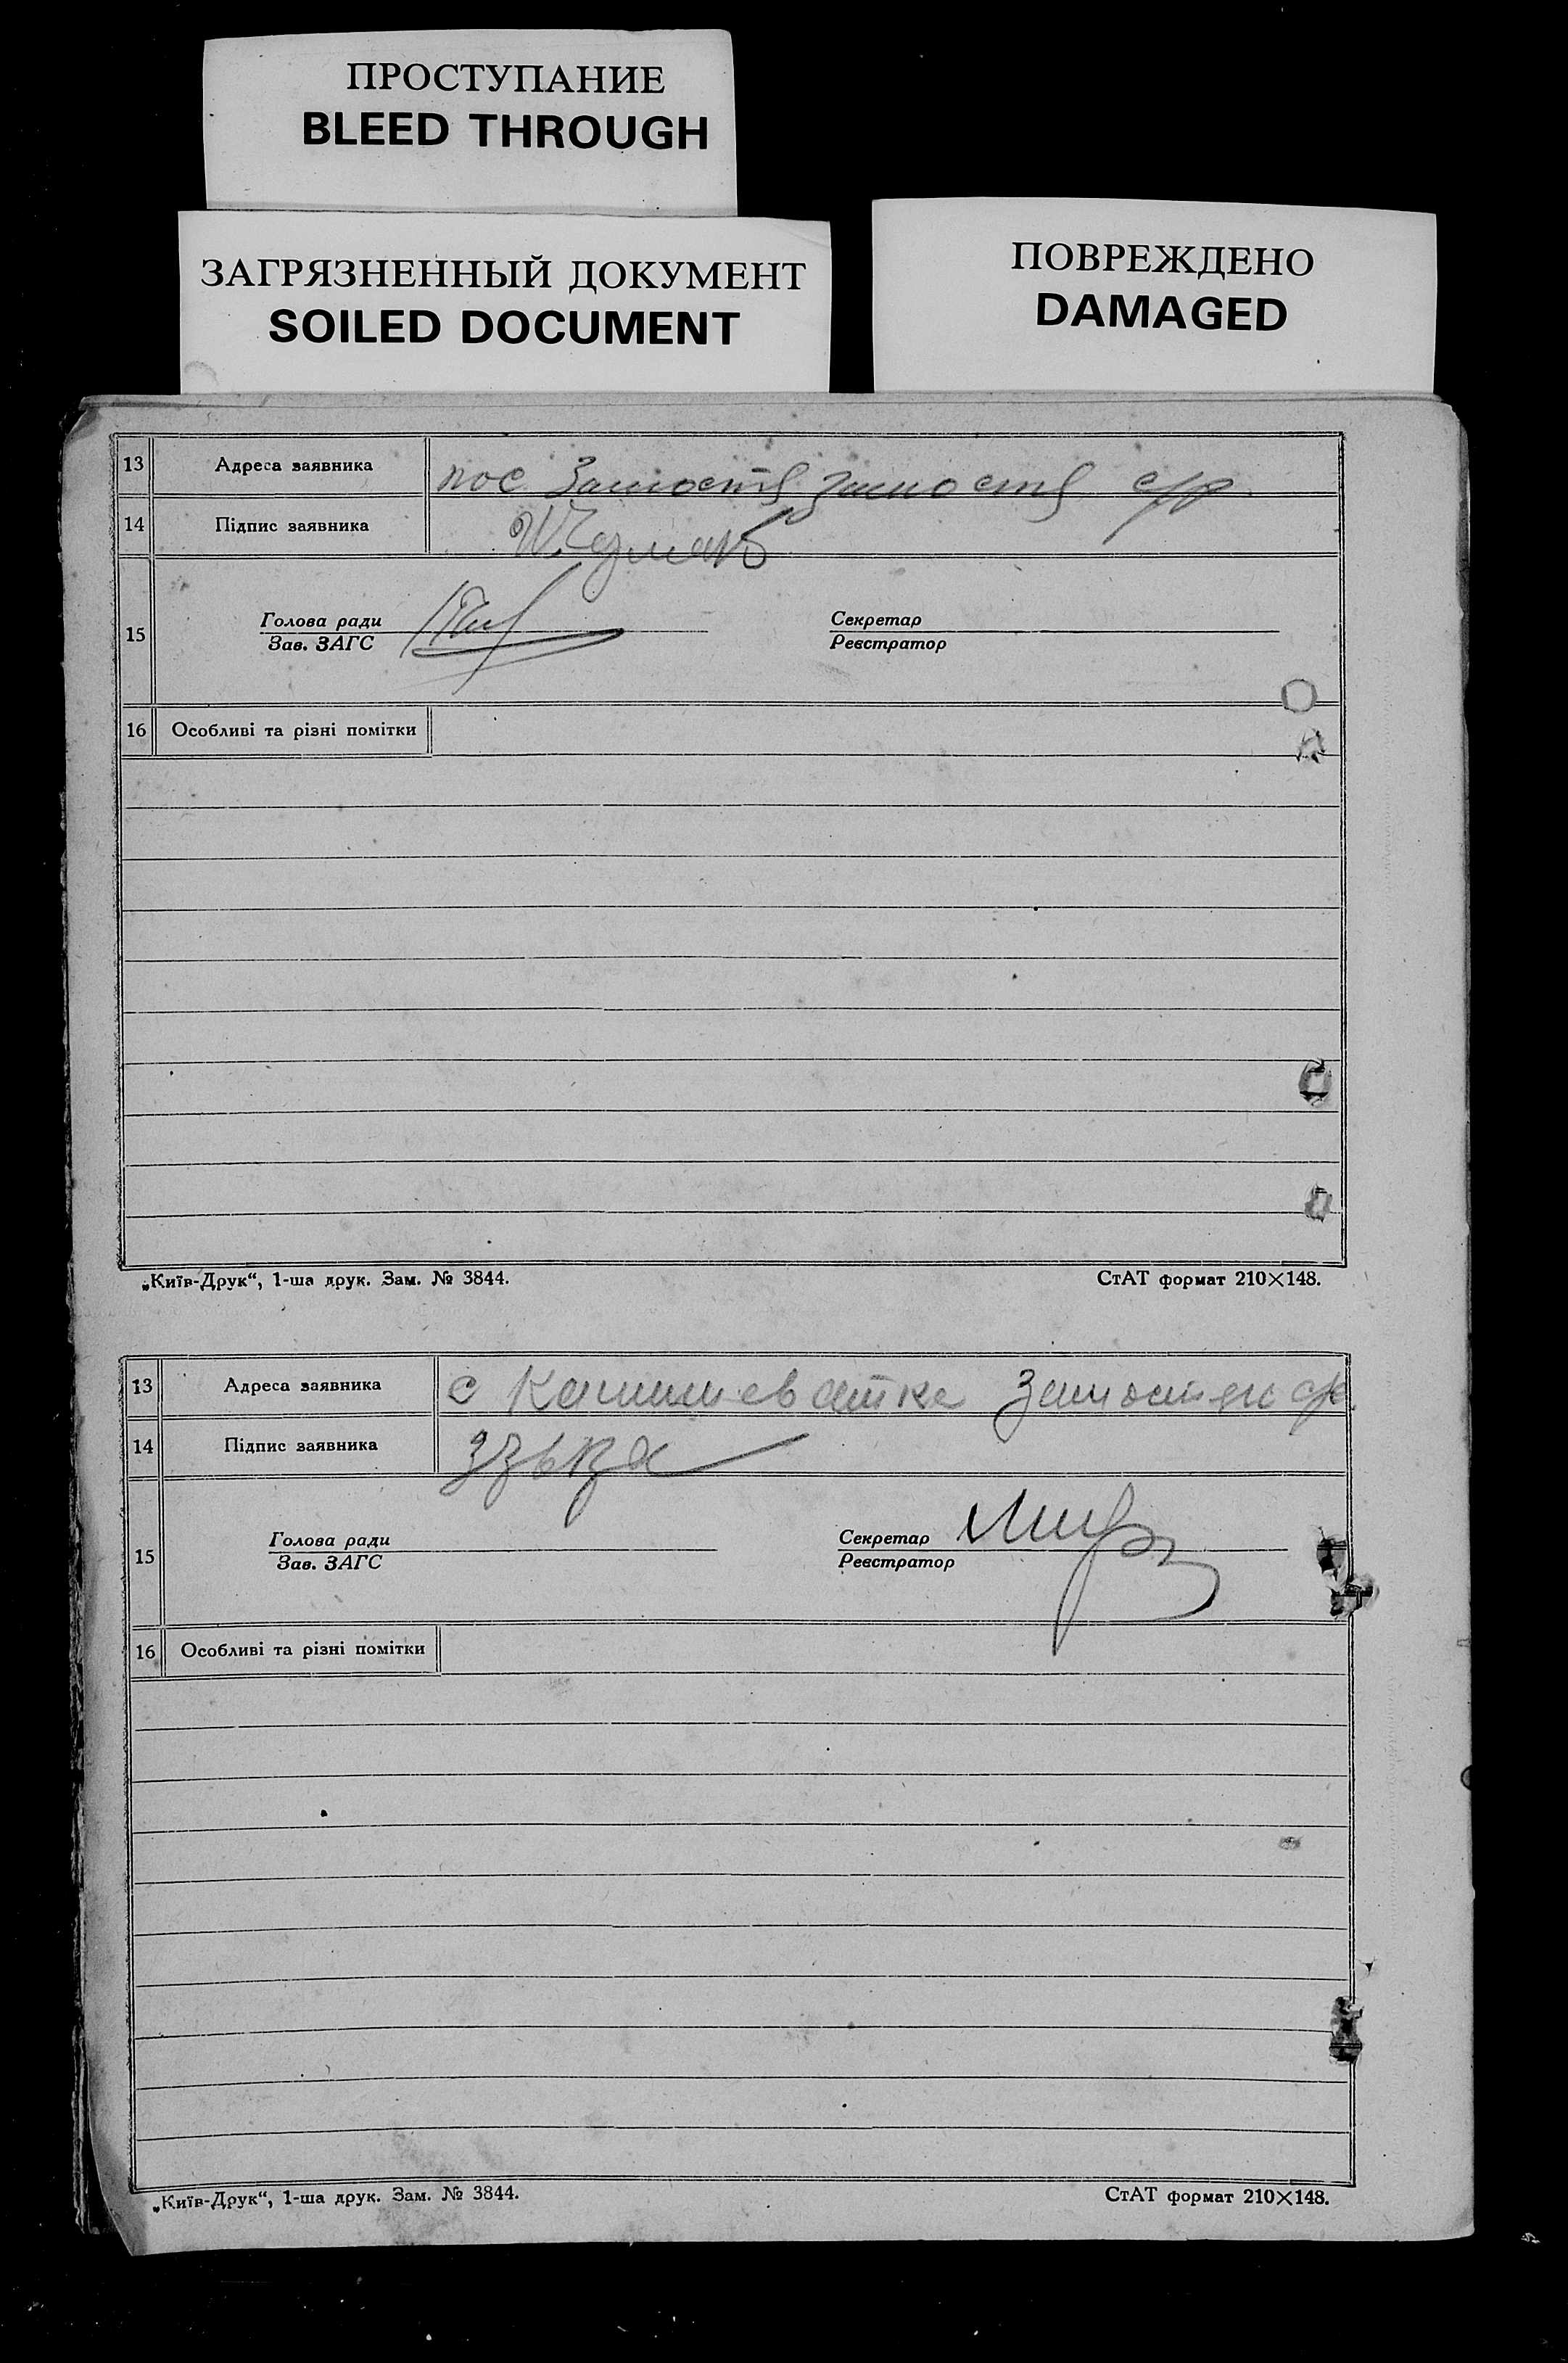 ПРОСТУПАНИЕ
BLEED THROUGH
ЗАГРЯЗНЕННЫЙ ДОКУМЕНТ
SOILED DOCUMENT
ПОВРЕЖДЕНО
DAMAGED
13 Адреса заявника пос Замостя Замостя с/р
14 Підпис заявника
15 Голова ради Секретар
Зав. ЗАГС Реєстратор
16 Особливі та різні помітки
„Київ-Друк“, 1-ша друк. Зам. № 3844. СтАТ формат 210×148.
13 Адреса заявника с
14 Підпис заявника
15 Голова ради Секретар
Зав. ЗАГС Реєстратор
16 Особливі та різні помітки
„Київ-Друк“, 1-ша друк. Зам. № 3844. СтАТ формат 210×148.